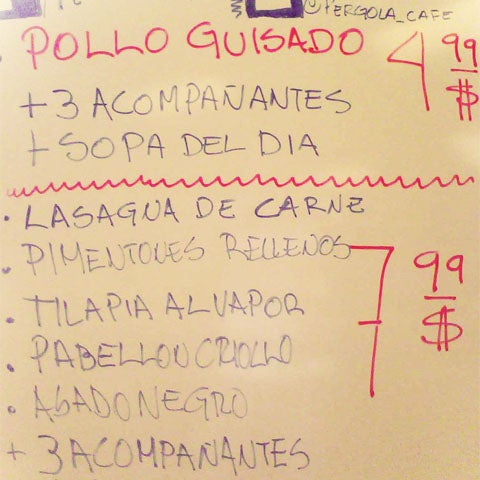 @PERGOLA_CAFE
• POLLO GUISADO 4 99 $
+ 3 ACOMPAÑANTES
+ SOPA DEL DIA
• LASAGNA DE CARNE
• PIMENTONES RELLENOS 7 99 $
• TILAPIA AL VAPOR
• PABELLON CRIOLLO
• ASADO NEGRO
+ 3 ACOMPAÑANTES